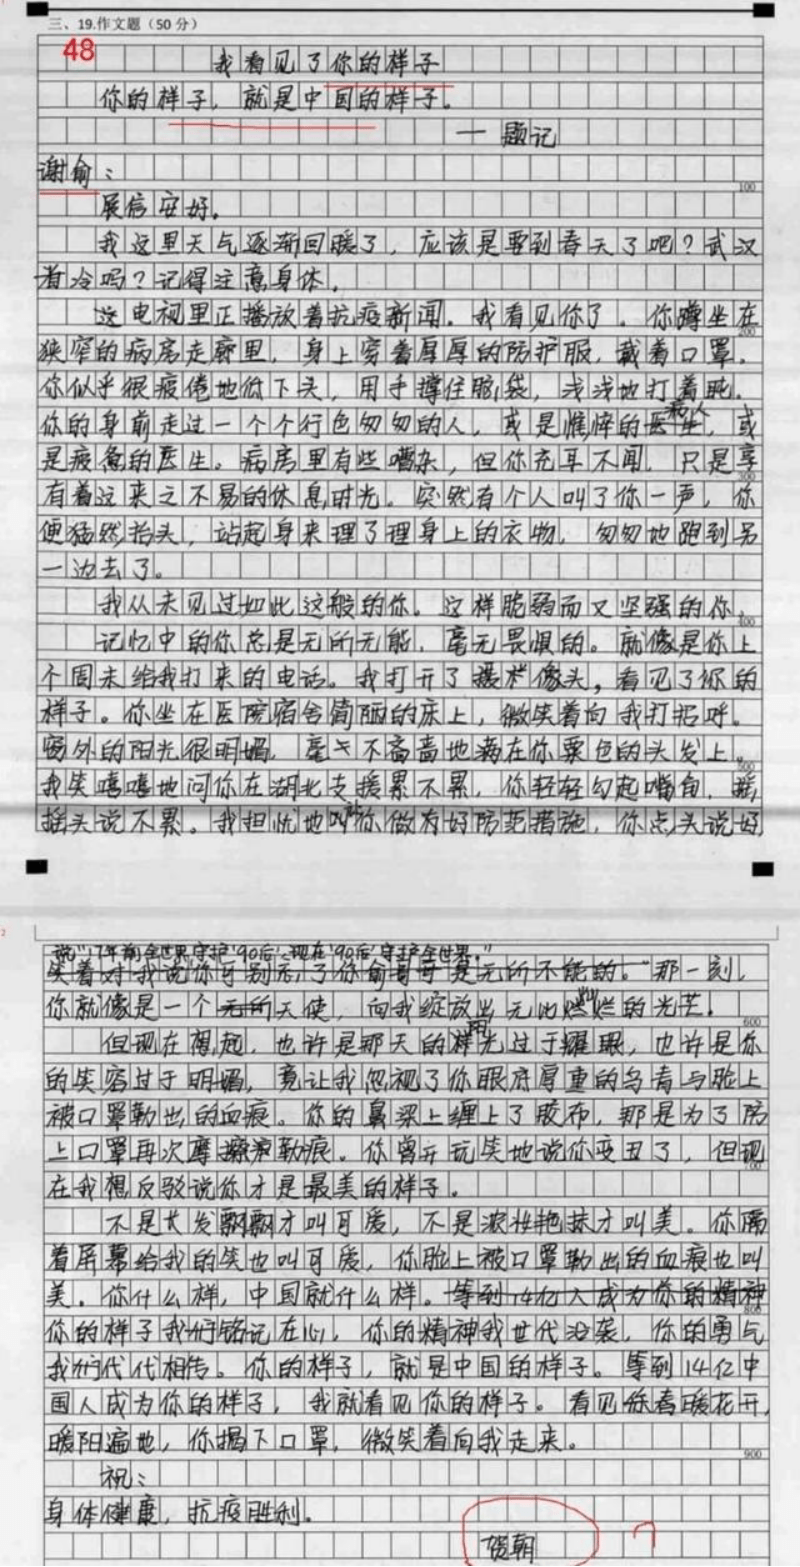 三、19.作文题（50分）
48
我看见了你的样子
你的样子，就是中国的样子。
一 题记
谢俞：
展信安好。
我这里天气逐渐回暖了，应该是要到春天了吧？武汉
着冷吗？记得注意身体。
这电视里正播放着抗疫新闻。我看见你了。你蹲坐在
狭窄的病房走廊里，身上穿着厚厚的防护服，戴着口罩。
你似乎很疲倦地低下头，用手撑住脑袋，浅浅地打着盹。
病人
你的身前走过一个个行色匆匆的人，或是憔悴的医生，或
是疲惫的医生。病房里有些嘈杂，但你充耳不闻，只是享
有着这来之不易的休息时光。突然有个人叫了你一声，你
便猛然抬头，站起身来理了理身上的衣物，匆匆地跑到另
一边去了。
我从未见过如此这般的你。这样脆弱而又坚强的你。
记忆中的你总是无所无能，毫无畏惧的。就像是你上
个周末给我打来的电话。我打开了摄像头，看见了你的
样子。你坐在医院宿舍简陋的床上，微笑着向我打招呼。
窗外的阳光很明媚，毫不吝啬地洒在你栗色的头发上。
我笑嘻嘻地问你在湖北支援累不累，你轻轻勾起嘴角，摇
摇头说不累。我担忧地叫你做有好防范措施，你点头说好
说"17年前全世界守护'90后'，现在'90后'守护全世界。"
笑着对我说"你可别忘了你俞哥可是无所不能的。"那一刻，
你就像是一个无所天使，向我绽放出无比灿烂的光芒。
阳
但现在想起，也许是那天的样光过于耀眼，也许是你
的笑容过于明媚，竟让我忽视了你眼底厚重的乌青与脸上
被口罩勒出的血痕。你的鼻梁上缠上了胶布，那是为了防
止口罩再次摩擦勒痕。你曾开玩笑地说你变丑了，但现
在我想反驳说你才是最美的样子。
不是长发飘飘才叫可爱，不是浓妆艳抹才叫美。你隔
着屏幕给我的笑也叫可爱，你脸上被口罩勒出的血痕也叫
美。你什么样，中国就什么样。等到14亿人成为你的精神
你的样子我们铭记在心，你的精神我世代沿袭，你的勇气
我们代代相传。你的样子，就是中国的样子。等到14亿中
国人成为你的样子，我就看见你的样子。看见你春暖花开，
暖阳遍地，你揭下口罩，微笑着向我走来。
祝：
身体健康，抗疫胜利。
贺朝
?